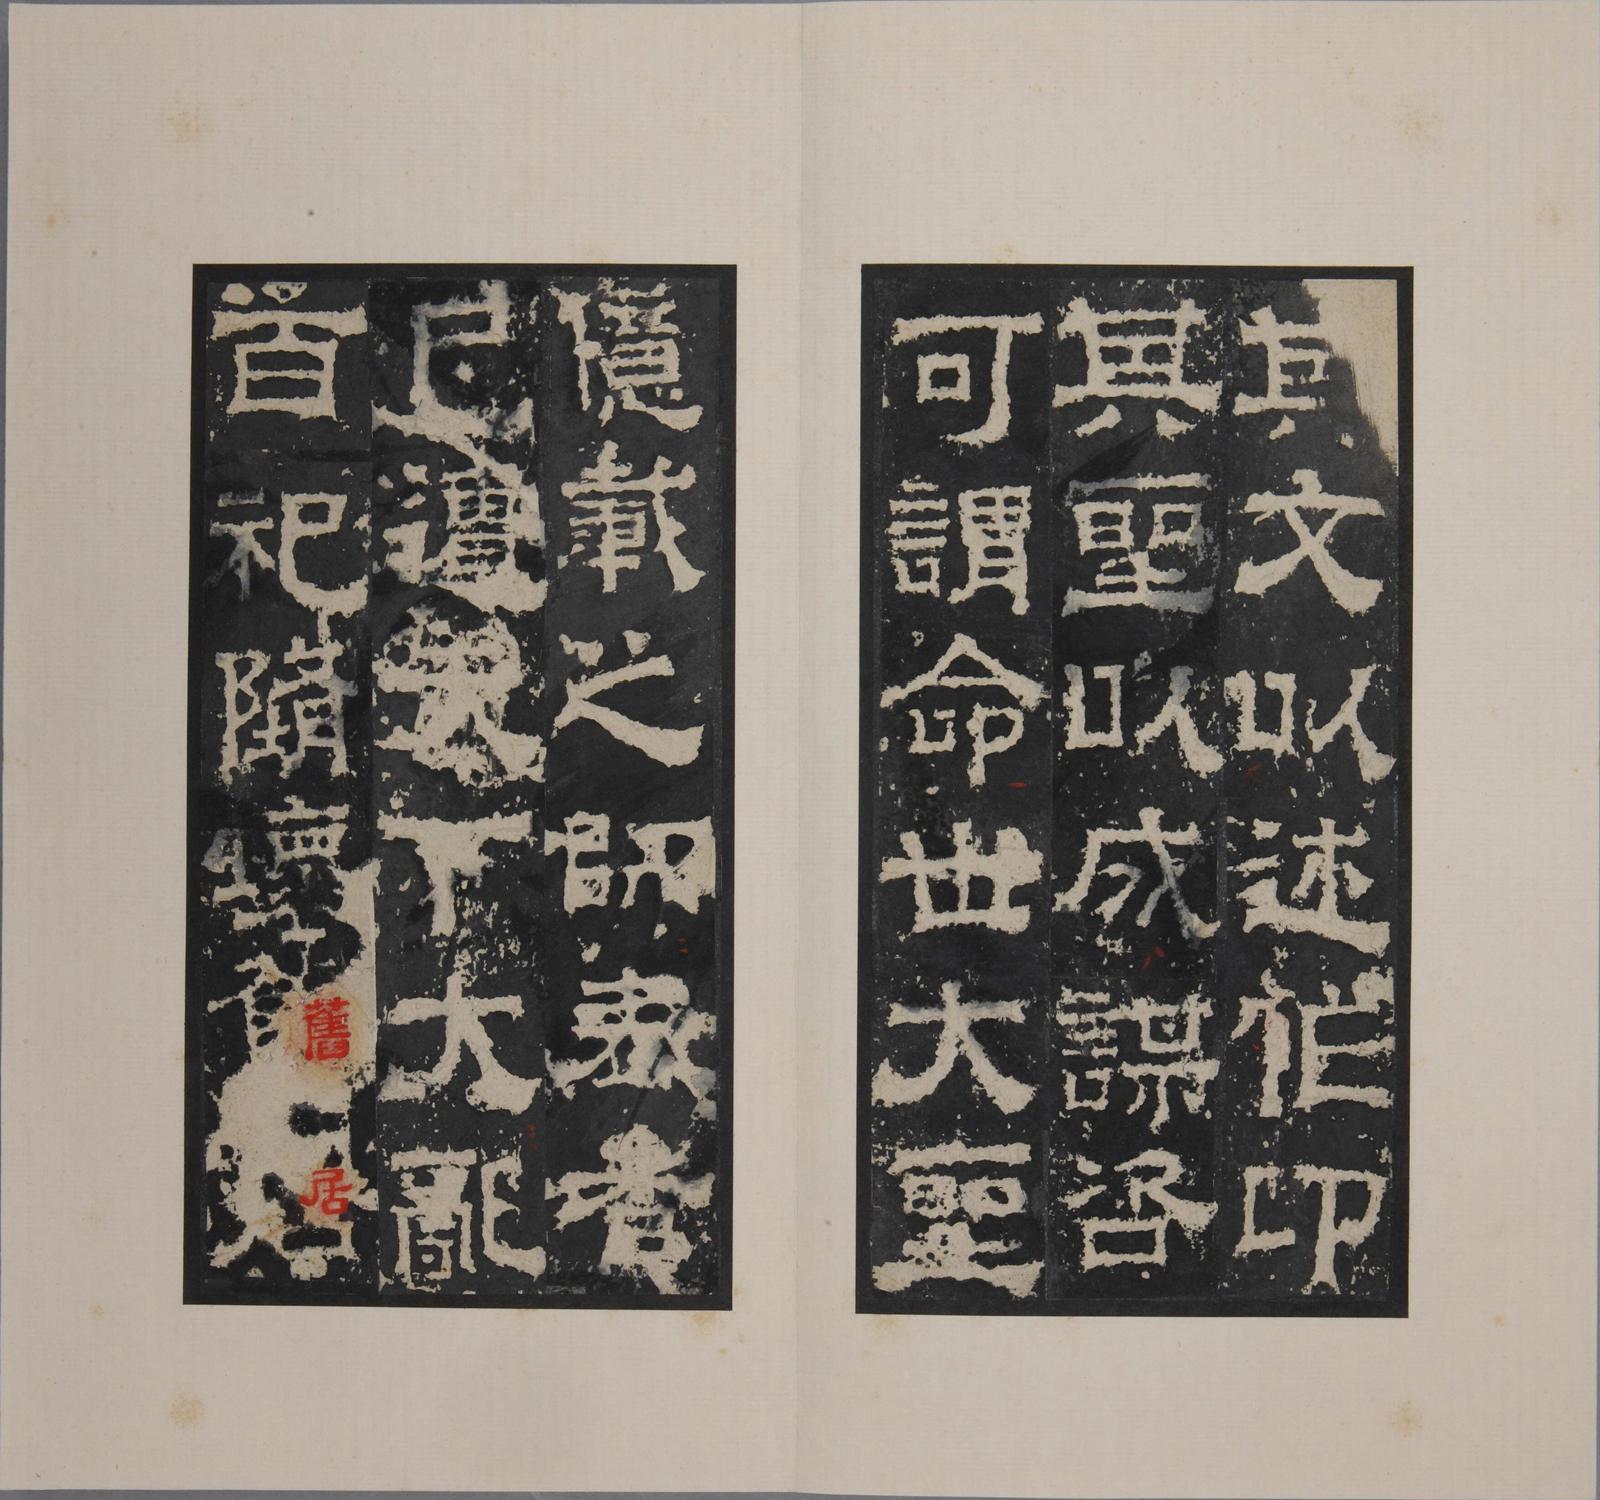 其文以述作卬
其聖以成謀咨
可謂命世大聖
億載之師表者
已遭天下大亂
百祀墮壞舊居